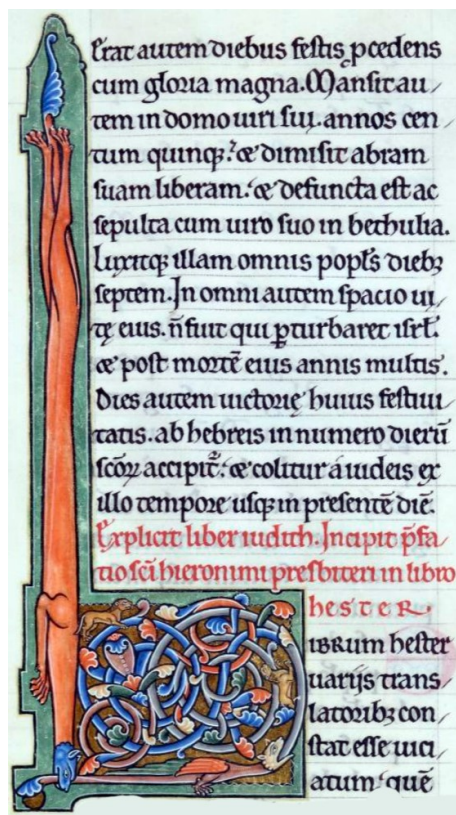 Erat autem diebus festis pcedens
cum gloria magna. Mansit au/
tem in domo uiri sui. annos cen/
tum quinq;. & dimisit abram
suam liberam. & defuncta est ac
sepulta cum uiro suo in bethulia.
Luxitq; illam omnis popl's dieb;
septem. In omni autem spacio ui/
tę eius. n̄ fuit qui pturbaret isrl'.
& post mortē eius annis multis.
Dies autem uictorię huius festiui
tatis. ab hebreis in numero dierū
scōꝝ accipit᷑. & colitur a iudeis ex
illo tempore usq; in presentē diē.
Explicit liber iudith. Incipit p̄fa/
tio sc̄i hieronimi presbiteri in libro
hester.
LIBRUM hester
uarijs trans/
latorib; con/
stat esse uici/
atum. quē